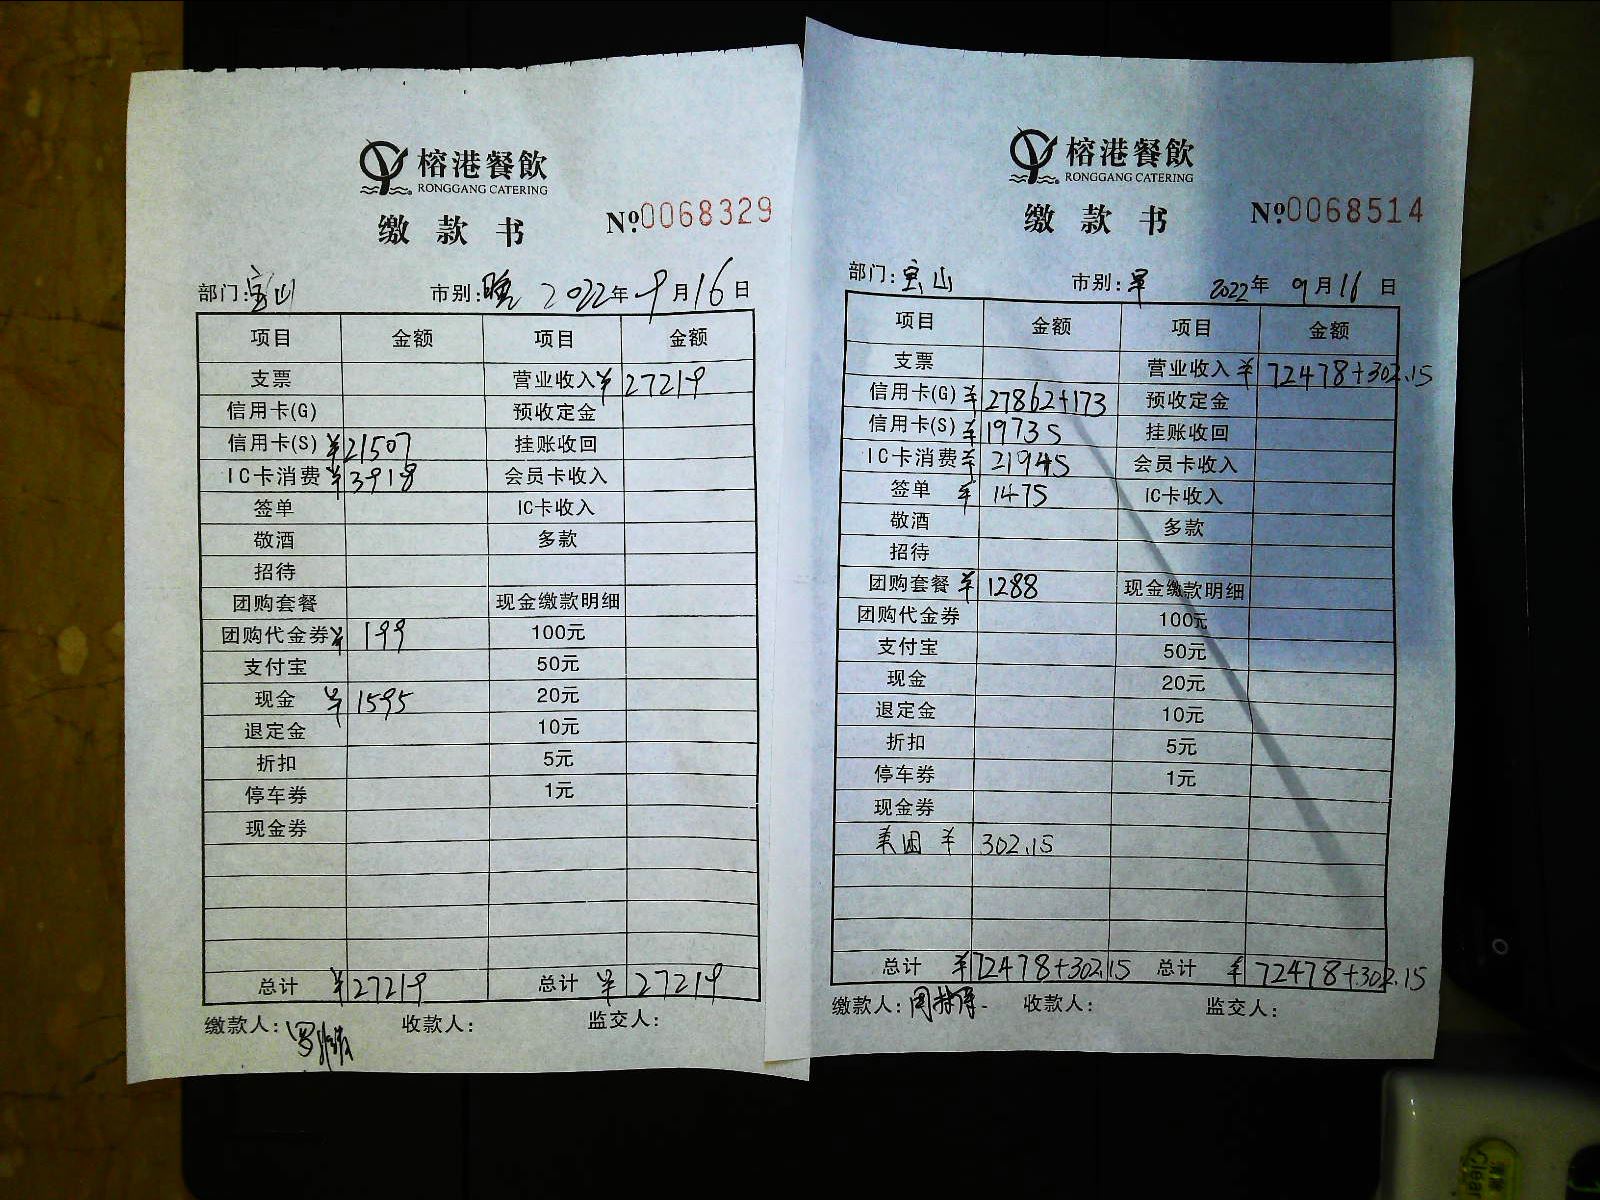 榕港餐飲
RONGGANG CATERING
缴款书 Nº 0068329
部门: 宝山 市别: 晚 2022年 9月16日
项目 金额 项目 金额
支票 营业收入 ¥27219
信用卡(G) 预收定金
信用卡(S) ¥21507 挂账收回
IC卡消费 ¥3918 会员卡收入
签单 IC卡收入
敬酒 多款
招待
团购套餐 现金缴款明细
团购代金券 ¥199 100元
支付宝 50元
现金 ¥1595 20元
退定金 10元
折扣 5元
停车券 1元
现金券
总计 ¥27219 总计 ¥27219
缴款人: 收款人: 监交人:
榕港餐飲
RONGGANG CATERING
缴款书 Nº 0068514
部门: 宝山 市别: 早 2022年 9月16日
项目 金额 项目 金额
支票 营业收入 ¥72478+302.15
信用卡(G) ¥27862+173 预收定金
信用卡(S) ¥19735 挂账收回
IC卡消费 ¥21945 会员卡收入
签单 ¥1475 IC卡收入
敬酒 多款
招待
团购套餐 ¥1288 现金缴款明细
团购代金券 100元
支付宝 50元
现金 20元
退定金 10元
折扣 5元
停车券 1元
现金券
美团 ¥302.15
总计 ¥72478+302.15 总计 ¥72478+302.15
缴款人: 收款人: 监交人: